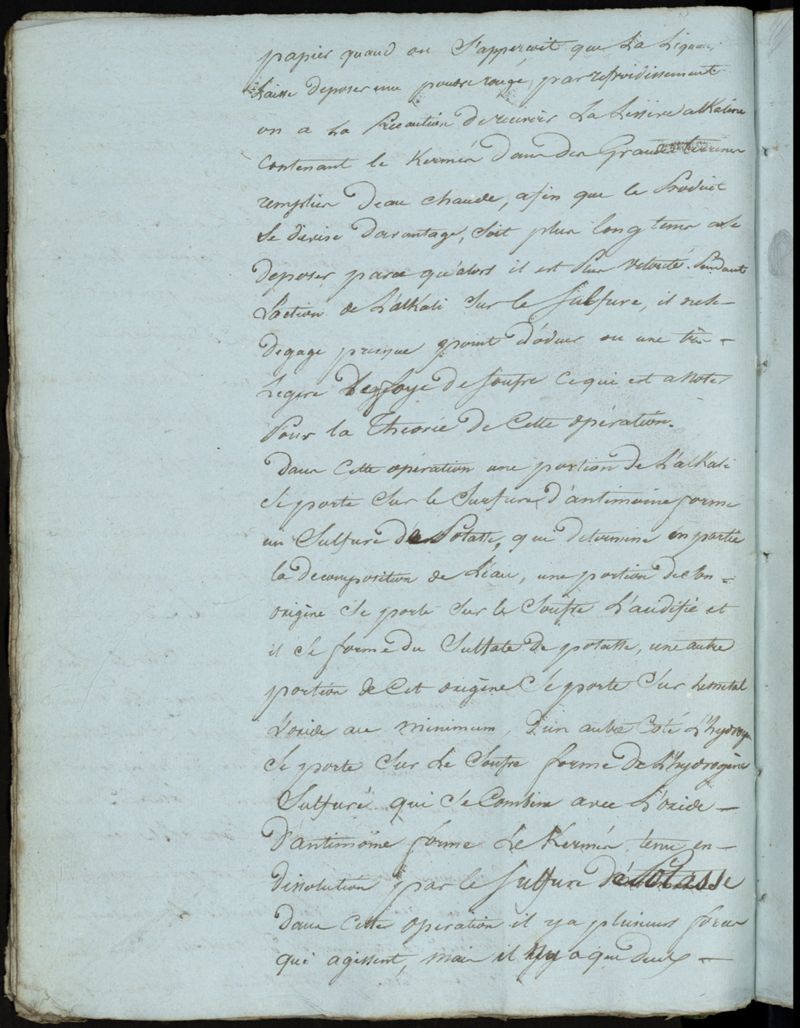 papier quand on S'apperçoit que La Ligueur
Laisse deposer une poudre rouge, par refroidissement
on a La Précaution De recevoir La Lessive alkaline
contenant le Kermès dans des Grandes terrines
remplies D'eau chaude, afin que le Produit
Se divise D'avantage, Soit plus long tems a se
deposer parce qu'alors il est plus velouté. Pendant
L'action de L'alkali Sur le Sulfure, il ne se
Degage presque point D'odeur ou une très
Legere de foye de Soufre Ce qui est a noter
Pour la Théorie De Cette opération.
Dans Cette opération une portion de L'alkali
Se porte Sur le Surfure D'antimoine forme
un Sulfure de Potasse, qui determine en partie
la decomposition de L'eau, une portion de Son
oxigène Se porte Sur le Soufre L'acidifie et
il Se forme du Sulfate De potasse, une autre
portion de Cet oxigène Se porte Sur Le métal
L'oxide au minimum, D'un autre Côté L'hydrog
Se porte Sur Le Soufre forme de L'hydrogène
Sulfuré qui Se Combine avec L'oxide
D'antimoine forme Le Kermès tenu en
dissolution par le Sulfure de Potasse
Dans Cette operation il y a plusieurs forces
qui agissent, mais il n'y a que deux